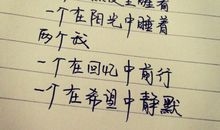 醒着
一个在阳光中睡着
两个我
一个在回忆中前行
一个在希望中静默